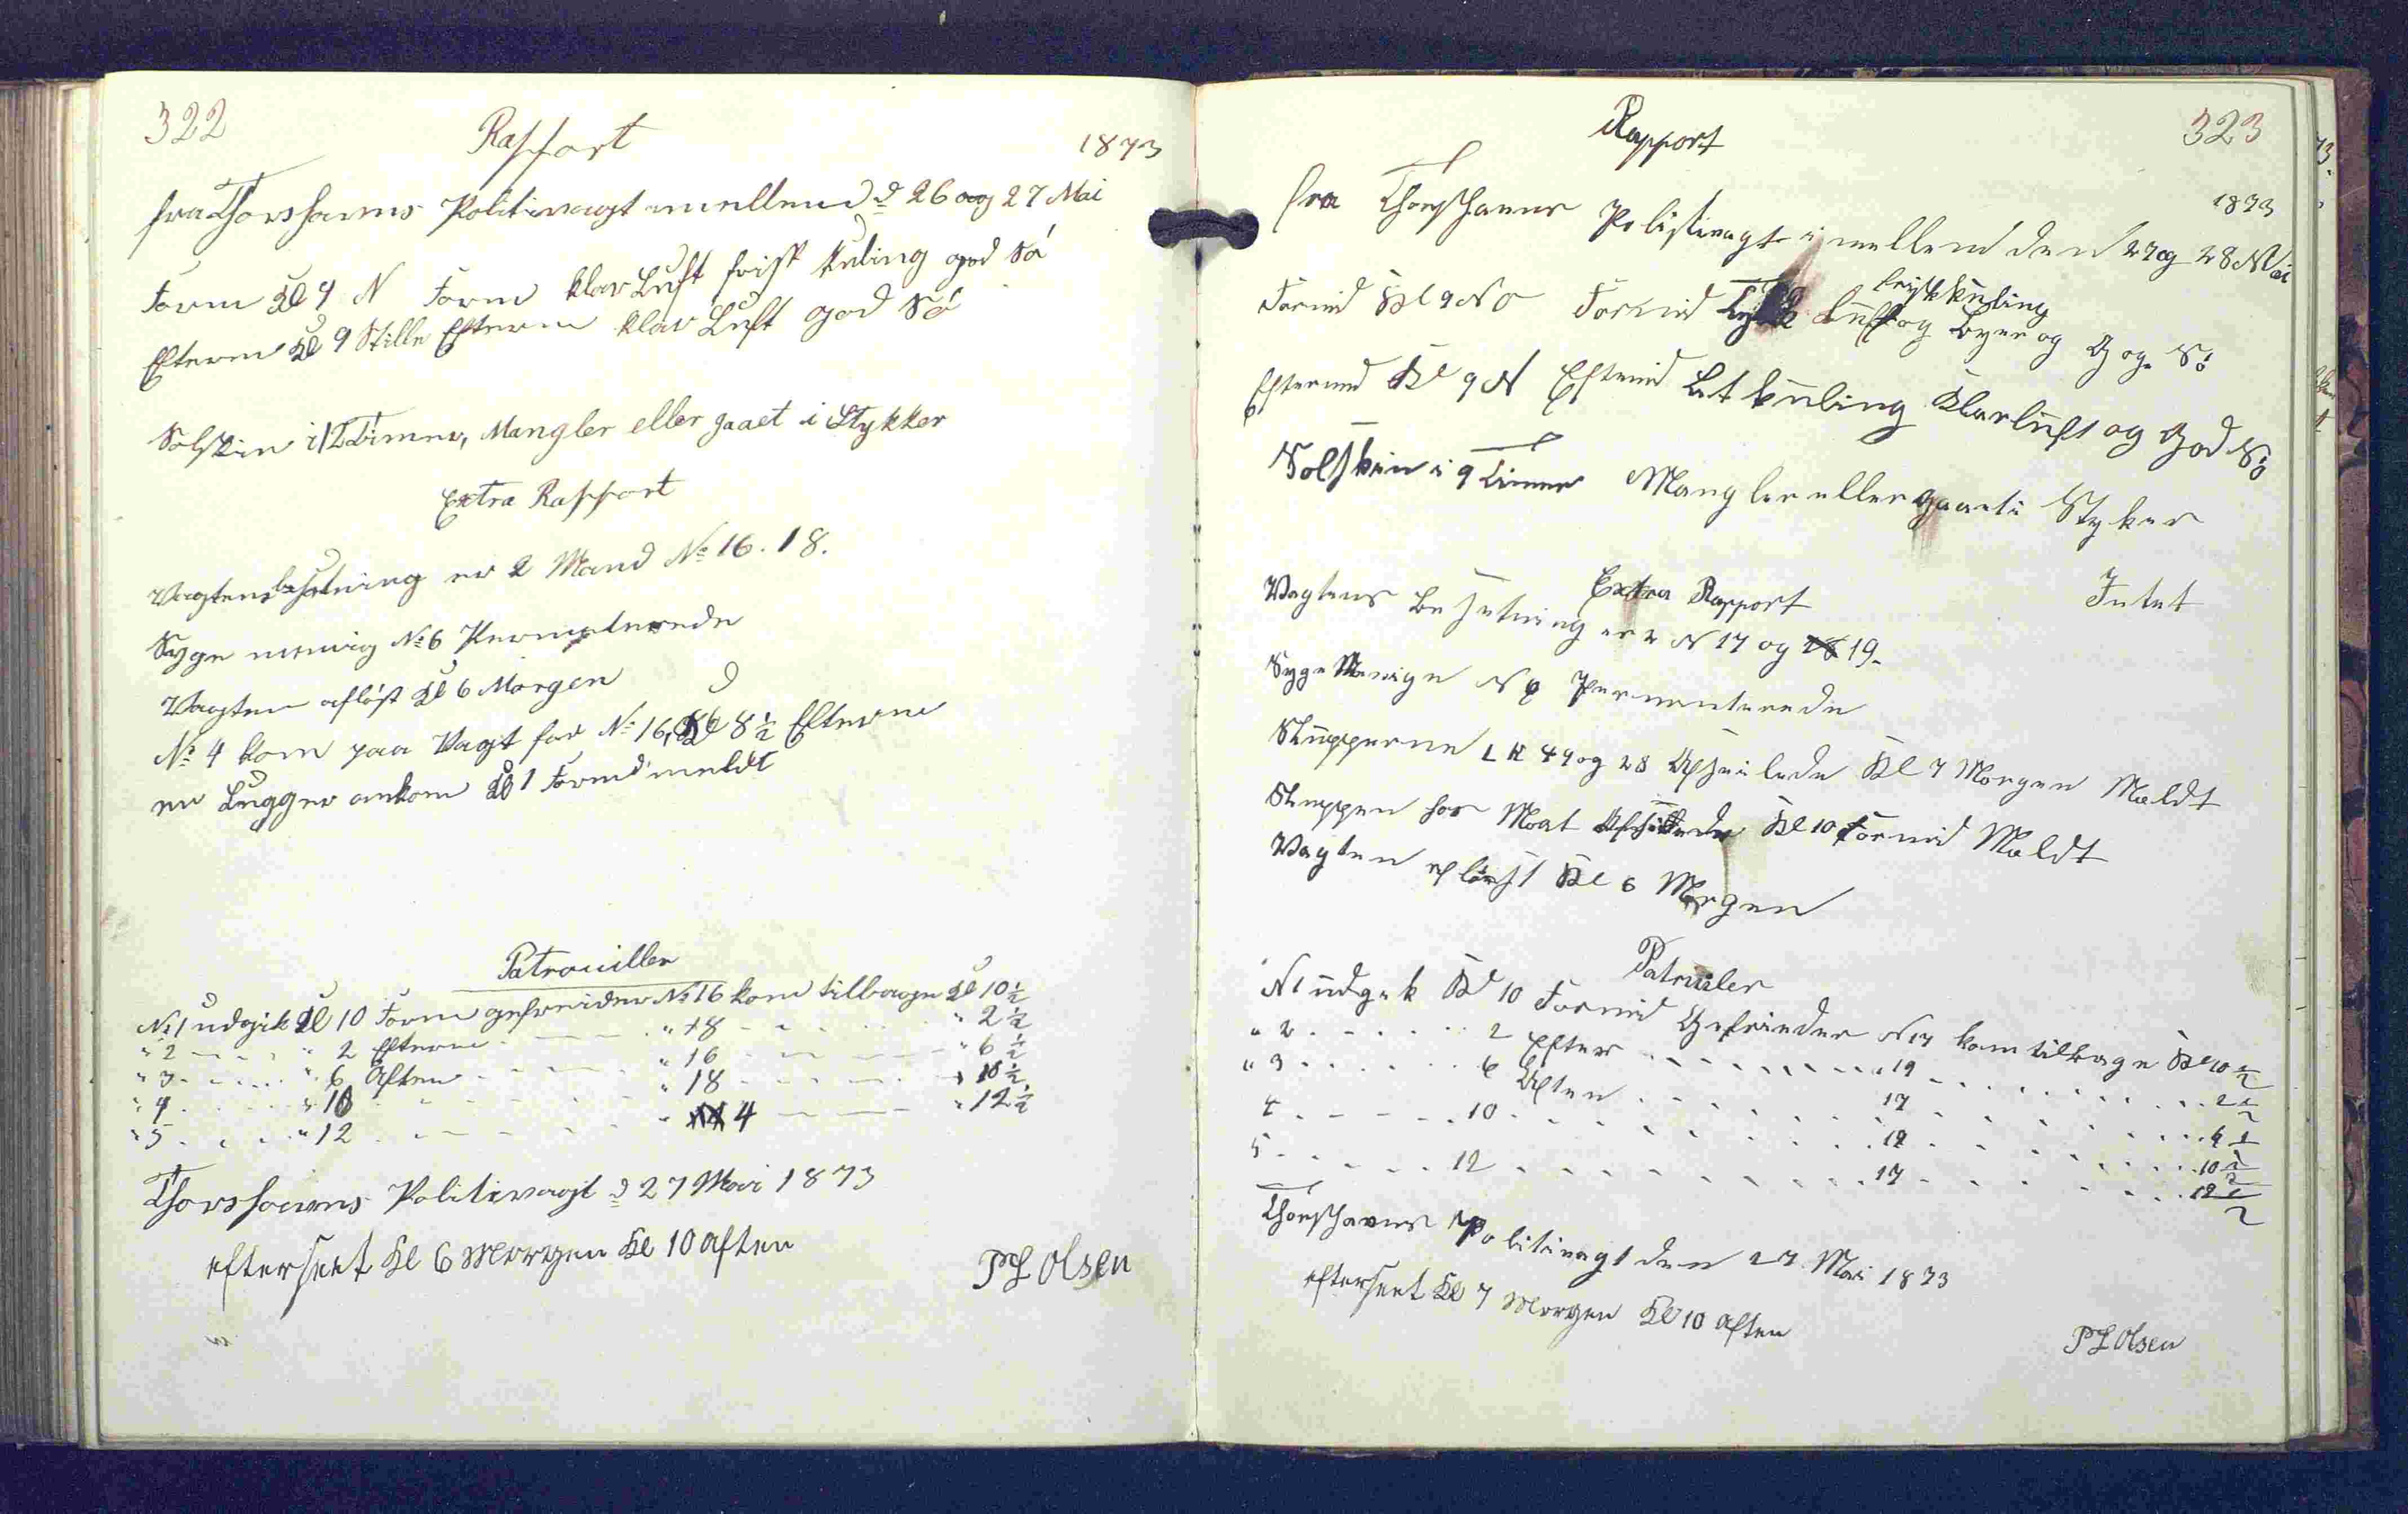 322
Rapport
1873
fra Thorshavns Politivagt imellem d 26 og 27 Mai
Form Kl 9 N Form klar Luft frisk kuling god Sö
Efterm Kl 9 Stille Efterm klar Luft god Sö
Solskin i 12 Timer, Mangler eller gaaet i Stykker
Extra Rapport
Vagtens besetning er 2 Mand No 16. 18.
Syge menig No 6 Permeterede
Vagten aflöst Kl 6 Morgen
No 4 kom paa Vagt for No 16, Kl 8½ Efterm
en Lugger ankom Kl 1 Formd meldt
Patrouiller
No 1 udgik Kl 10 Form gefreider No 16 kom tilbage Kl 10½
" 2 - - - " 2 Efterm - - - " 18 - - - " 2½
" 3 - - - " 6 Aften - - - " 16 - - - " 6½
" 4 - - - " 10 - - - " 18 - - - " 10½
" 5 - - - " 12 - - - " 4 - - - " 12½
Thorshavns Politivagt d 27 Mai 1873
efterseet Kl 6 Morgen Kl 10 aften
PL Olsen
323
Rapport
1873
fra Thorshavns Politivagt imellem den 27 og 28 Mai
friskkuling
Formd Kl 9 NO Formd Luft og Byer og God Sö
Eftermd Kl 9 N Eftmd Let kuling Klarluft og God Sö
Solskin i 9 Timer Mangler eller gaaeti Styker
Intet
Extra Rapport
Vagtens Besetning er 2 N 17 og 18 19.
Syge Menige N 6 Permenterede
Slupperne LK 44 og 28 Afseilede Kl 7 Morgen Meldt
Sluppen hos Mort Kl 10 Formd Meldt
Vagten aflöst Kl 6 Morgen
Patruiler
N 1 udgik Kl 10 Formd Gefrieder N 17 kom tilbage Kl 10½
" 2 - - - 2 Efter - - - 19 - - - 2½
" 3 - - - 6 Aften - - - 17 - - - 6½
4 - - - 10 - - - 19 - - - 10½
5 - - - 12 - - - 17 - - - 12½
Thorshavns Politivagt den 27 Mai 1873
efterseet Kl 7 Morgen Kl 10 aften
PL Olsen